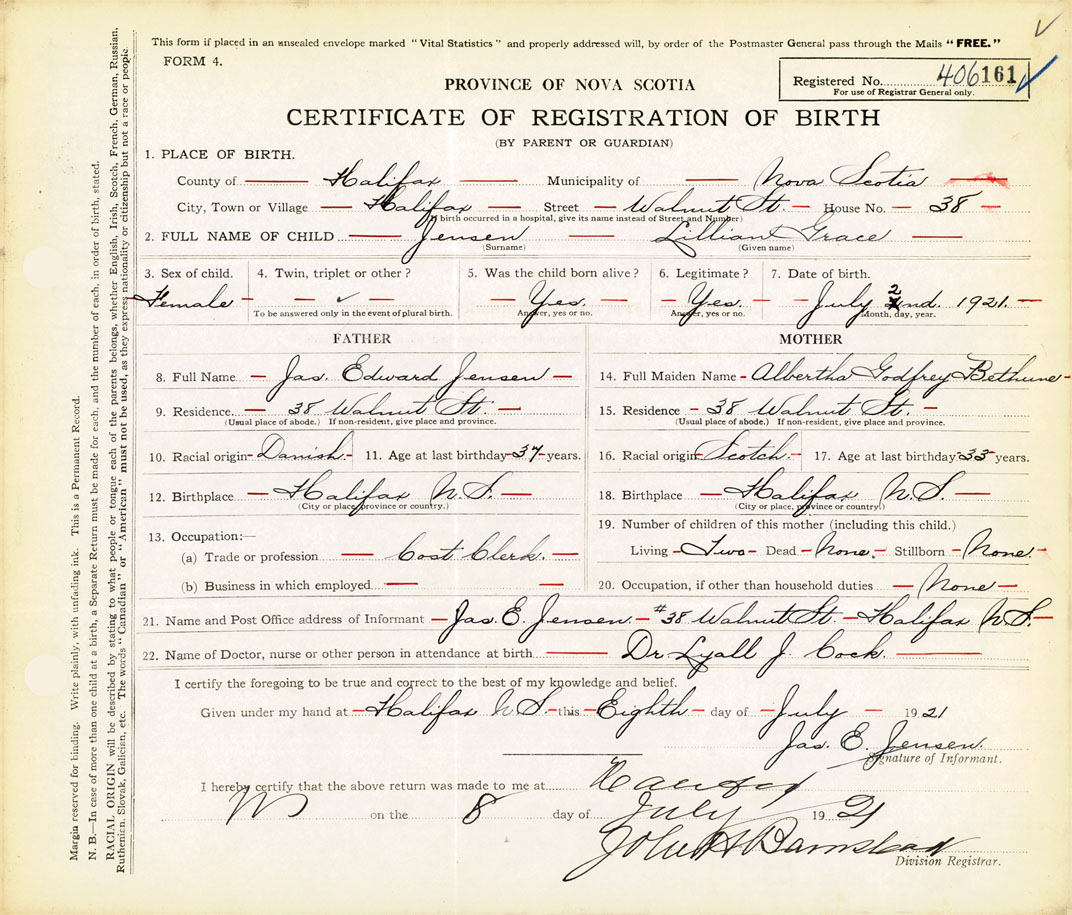 This form if placed in an unsealed envelope marked "Vital Statistics" and properly addressed will, by order of the Postmaster General pass through the Mails "FREE."
FORM 4.
Registered No. 406161
For use of Registrar General only.
PROVINCE OF NOVA SCOTIA
CERTIFICATE OF REGISTRATION OF BIRTH
(BY PARENT OR GUARDIAN)
1. PLACE OF BIRTH.
County of Halifax Municipality of Nova Scotia
City, Town or Village Halifax Street Walnut St. House No. 38
(If birth occurred in a hospital, give its name instead of Street and Number)
2. FULL NAME OF CHILD Jensen Lillian Grace
(Surname) (Given name)
3. Sex of child. 4. Twin, triplet or other? 5. Was the child born alive? 6. Legitimate? 7. Date of birth.
Female ✓ Yes. Yes. July 2nd. 1921.
To be answered only in the event of plural birth. Answer, yes or no. Answer, yes or no. Month, day, year.
FATHER MOTHER
8. Full Name Jas. Edward Jensen 14. Full Maiden Name Albertha Godfrey Bethune
9. Residence. 38 Walnut St. 15. Residence 38 Walnut St.
(Usual place of abode.) If non-resident, give place and province. (Usual place of abode.) If non-resident, give place and province.
10. Racial origin Danish. 11. Age at last birthday 37 years. 16. Racial origin Scotch. 17. Age at last birthday 33 years.
12. Birthplace Halifax N.S. 18. Birthplace Halifax N.S.
(City or place, province or country.) (City or place, province or country)
13. Occupation:— 19. Number of children of this mother (including this child.)
(a) Trade or profession Cost Clerk. Living Two Dead None. Stillborn None.
(b) Business in which employed 20. Occupation, if other than household duties None
21. Name and Post Office address of Informant Jas. E. Jensen. #38 Walnut St. Halifax N.S.
22. Name of Doctor, nurse or other person in attendance at birth Dr Lyall J. Cock.
I certify the foregoing to be true and correct to the best of my knowledge and belief.
Given under my hand at Halifax N.S. this Eighth day of July 1921
Jas. E. Jensen.
Signature of Informant.
I hereby certify that the above return was made to me at Halifax
on the 8 day of July 1921
John H Barnstead
Division Registrar.
Margin reserved for binding. Write plainly, with unfading ink. This is a Permanent Record.
N. B.—In case of more than one child at a birth, a Separate Return must be made for each, and the number of each, in order of birth, stated.
RACIAL ORIGIN will be described by stating to what people or tongue each of the parents belongs, whether English, Irish, Scotch, French, German, Russian,
Ruthenian, Slovak, Galician, etc. The words "Canadian" or "American" must not be used, as they express nationality or citizenship but not a race or people.